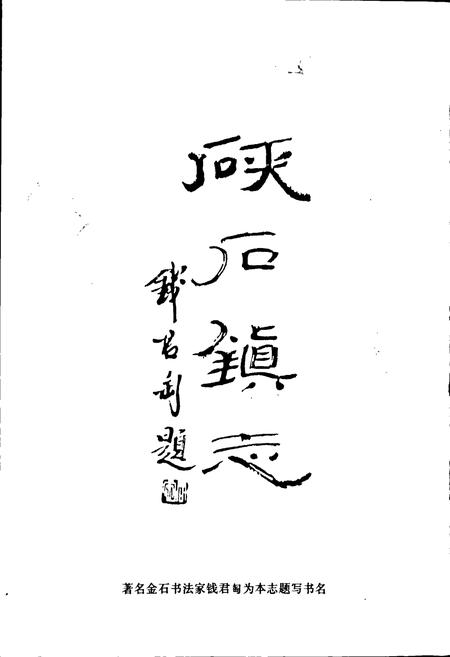 硖石鎮志
錢君匋題
著名金石书法家钱君匋为本志题写书名